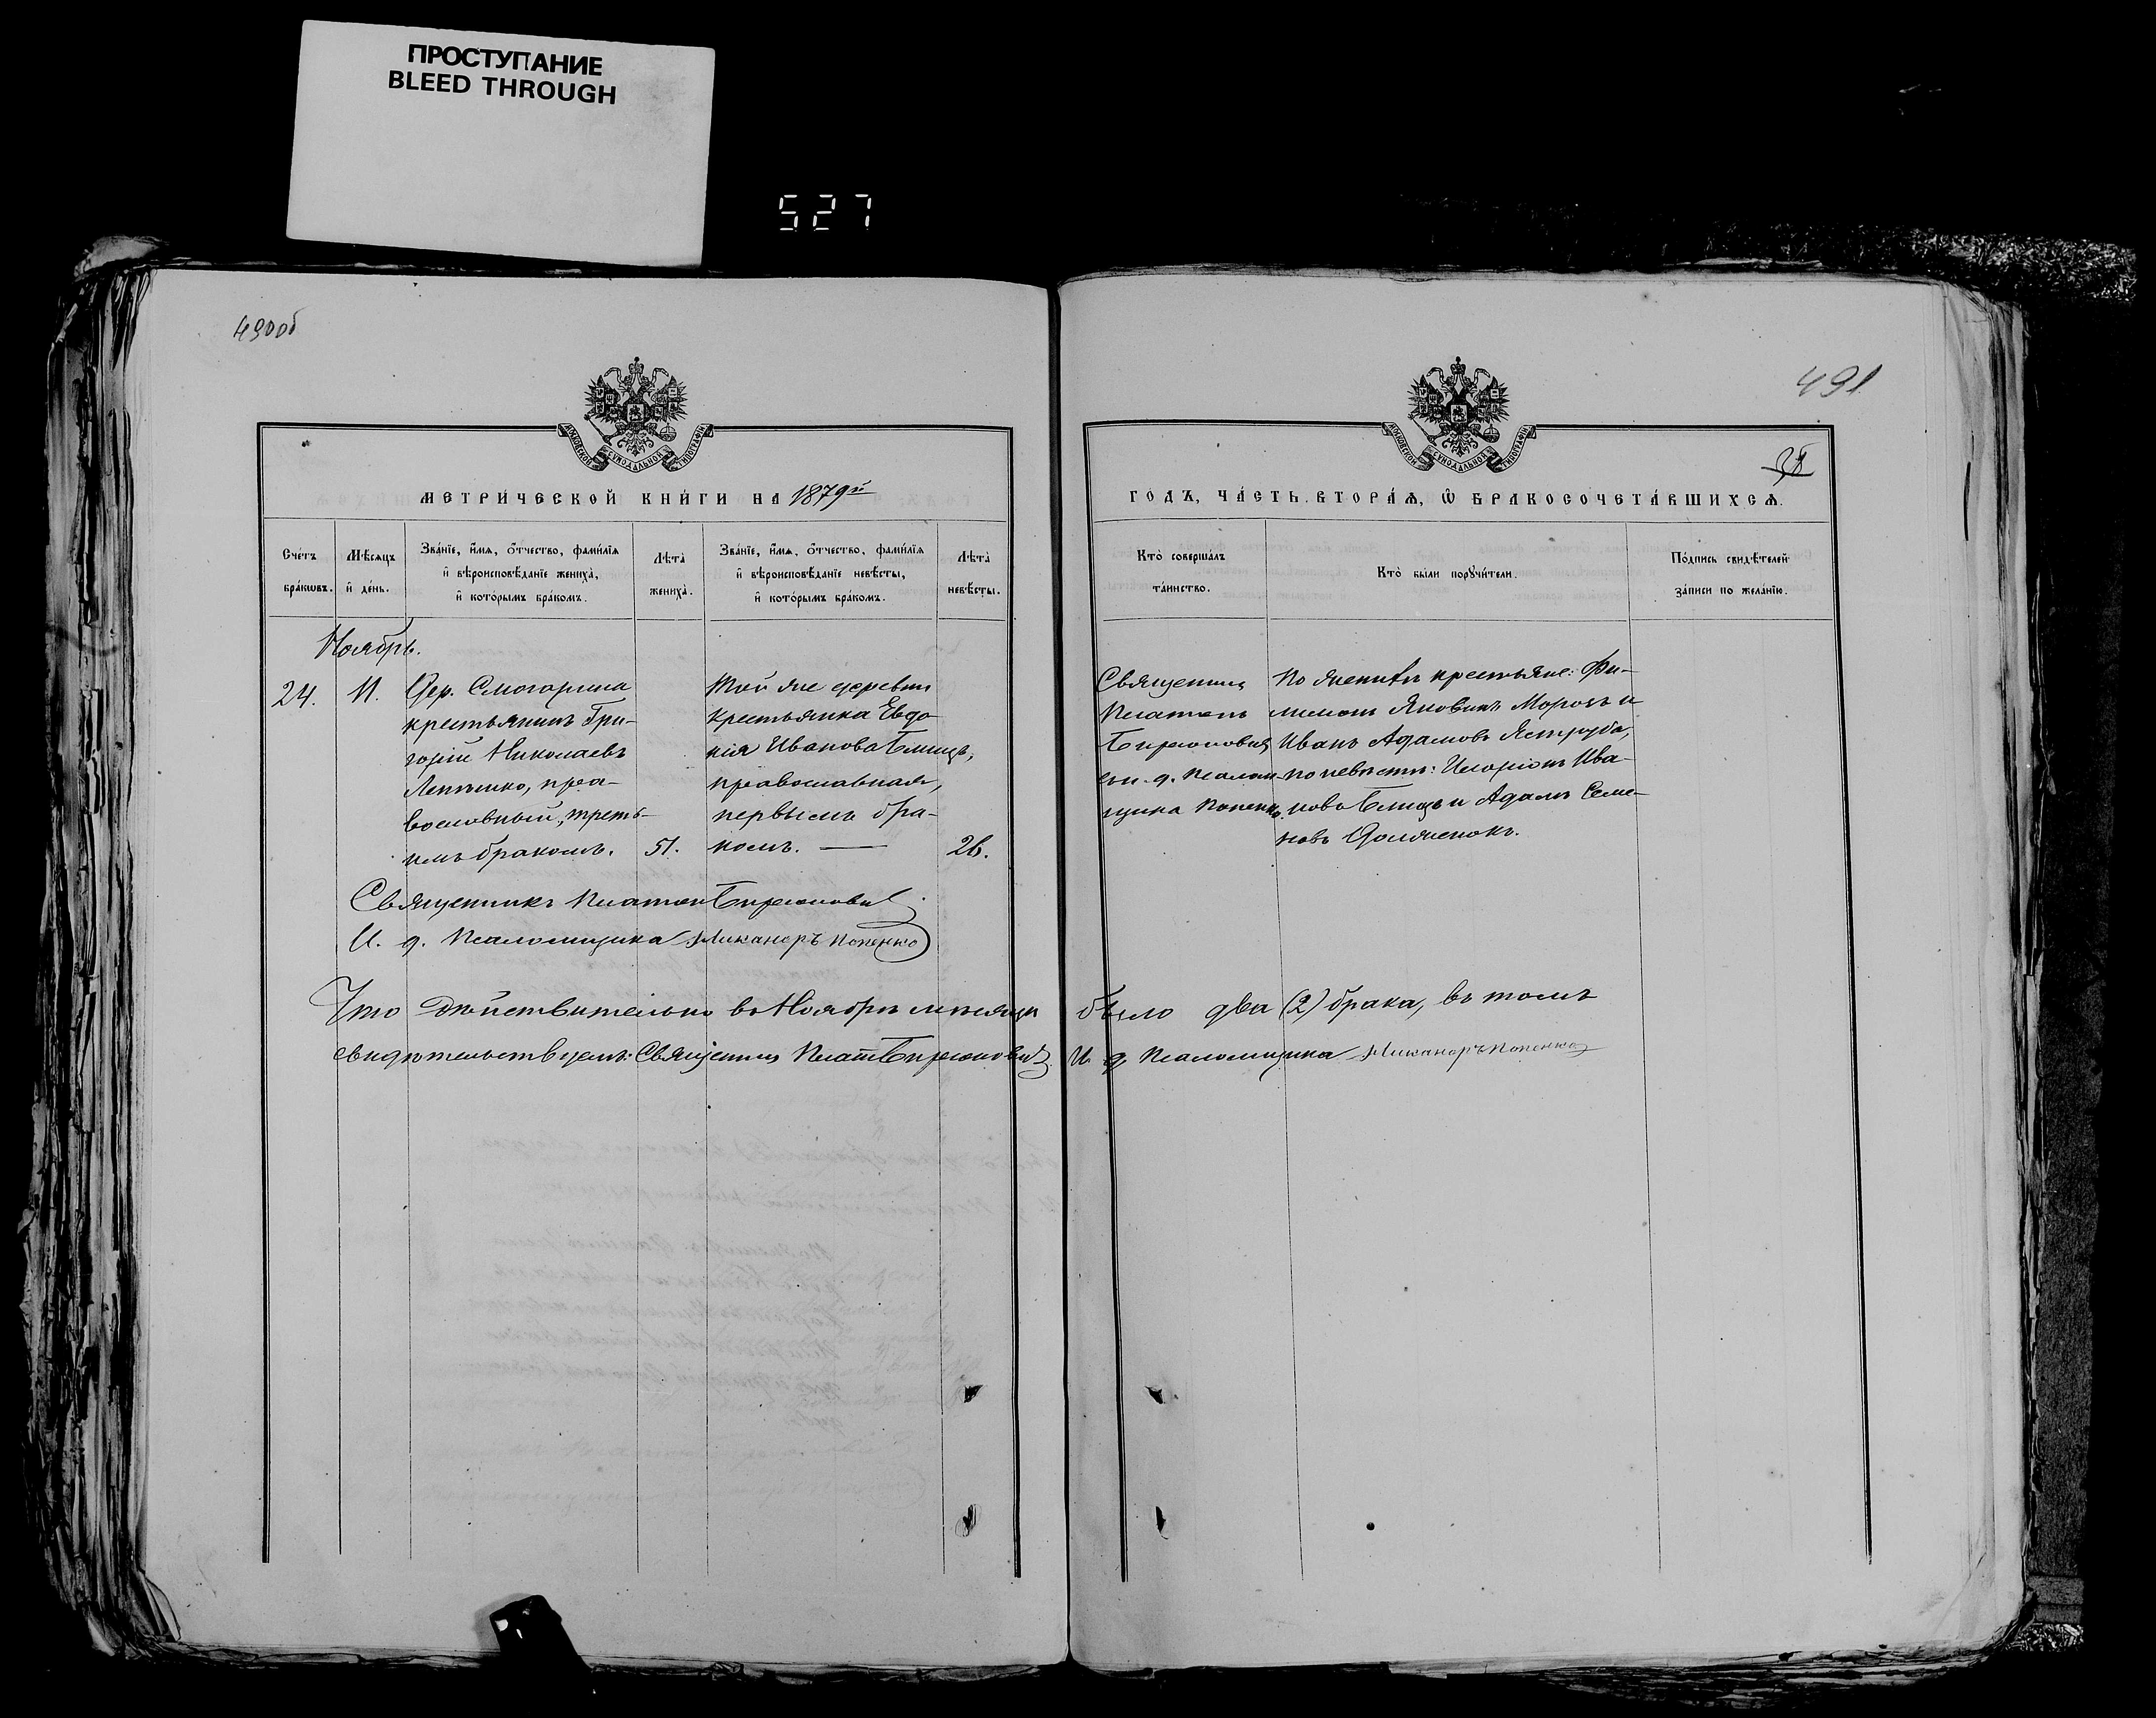 ПРОСТУПАНИЕ
BLEED THROUGH
527
490об
491
МОСКОВСКОЙ СѴНОДАЛЬНОЙ ТИПОГРАФІИ
МОСКОВСКОЙ СѴНОДАЛЬНОЙ ТИПОГРАФІИ
МЕТРИ́ЧЕСКОЙ КНИ́ГИ НА 1879й
ГО́ДЪ, ЧА́СТЬ ВТОРА́Ѧ, Ѽ БРАКОСОЧЕТА́ВШИХСѦ.
Сче́тъ бра́кѡвъ.
Мѣ́сѧцъ и҆ де́нь.
Зва́нїе, и҆́мѧ, ѻ҆́тчество, фами́лїѧ и҆ вѣроисповѣ́данїе жениха̀, и҆ кото́рымъ бра́комъ.
Лѣта̀ жениха̀.
Зва́нїе, и҆́мѧ, ѻ҆́тчество, фами́лїѧ и҆ вѣроисповѣ́данїе невѣ́сты, и҆ кото́рымъ бра́комъ.
Лѣта̀ невѣ́сты.
Кто̀ соверша́лъ та́инство.
Кто̀ бы́ли порꙋчи́тели.
По́дпись свидѣ́телей за́писи по жела́нїю.
Ноябрь.
24. 11.
Дер. Смогарина
крестьянинъ Гри-
горій Николаевъ
Лепешко, пра-
вославный, треть-
имъ бракомъ. 51.
Той же деревни
крестьянка Евдо-
кія Иванова Блищъ,
православная,
первымъ бра-
комъ. — 26.
Священникъ
Платонъ
Бирюковичъ
съ и. д. псалом-
щика Попенко.
По женихѣ крестьяне: Фи-
лимонъ Яковичъ Морозъ и
Иванъ Адамовъ Яструба,
по невѣстѣ: Иларіонъ Ива-
новъ Блищъ и Адамъ Семе-
новъ Долженокъ.
Священникъ Платонъ Бирюковичъ
И. д. Псаломщика Никаноръ Попенко
Что дѣйствительно въ Ноябрѣ мѣсяцѣ было два (2) брака, въ томъ
свидѣтельствуемъ: Священникъ Плат Бирюковичъ И. д. Псаломщика Никаноръ Попенко